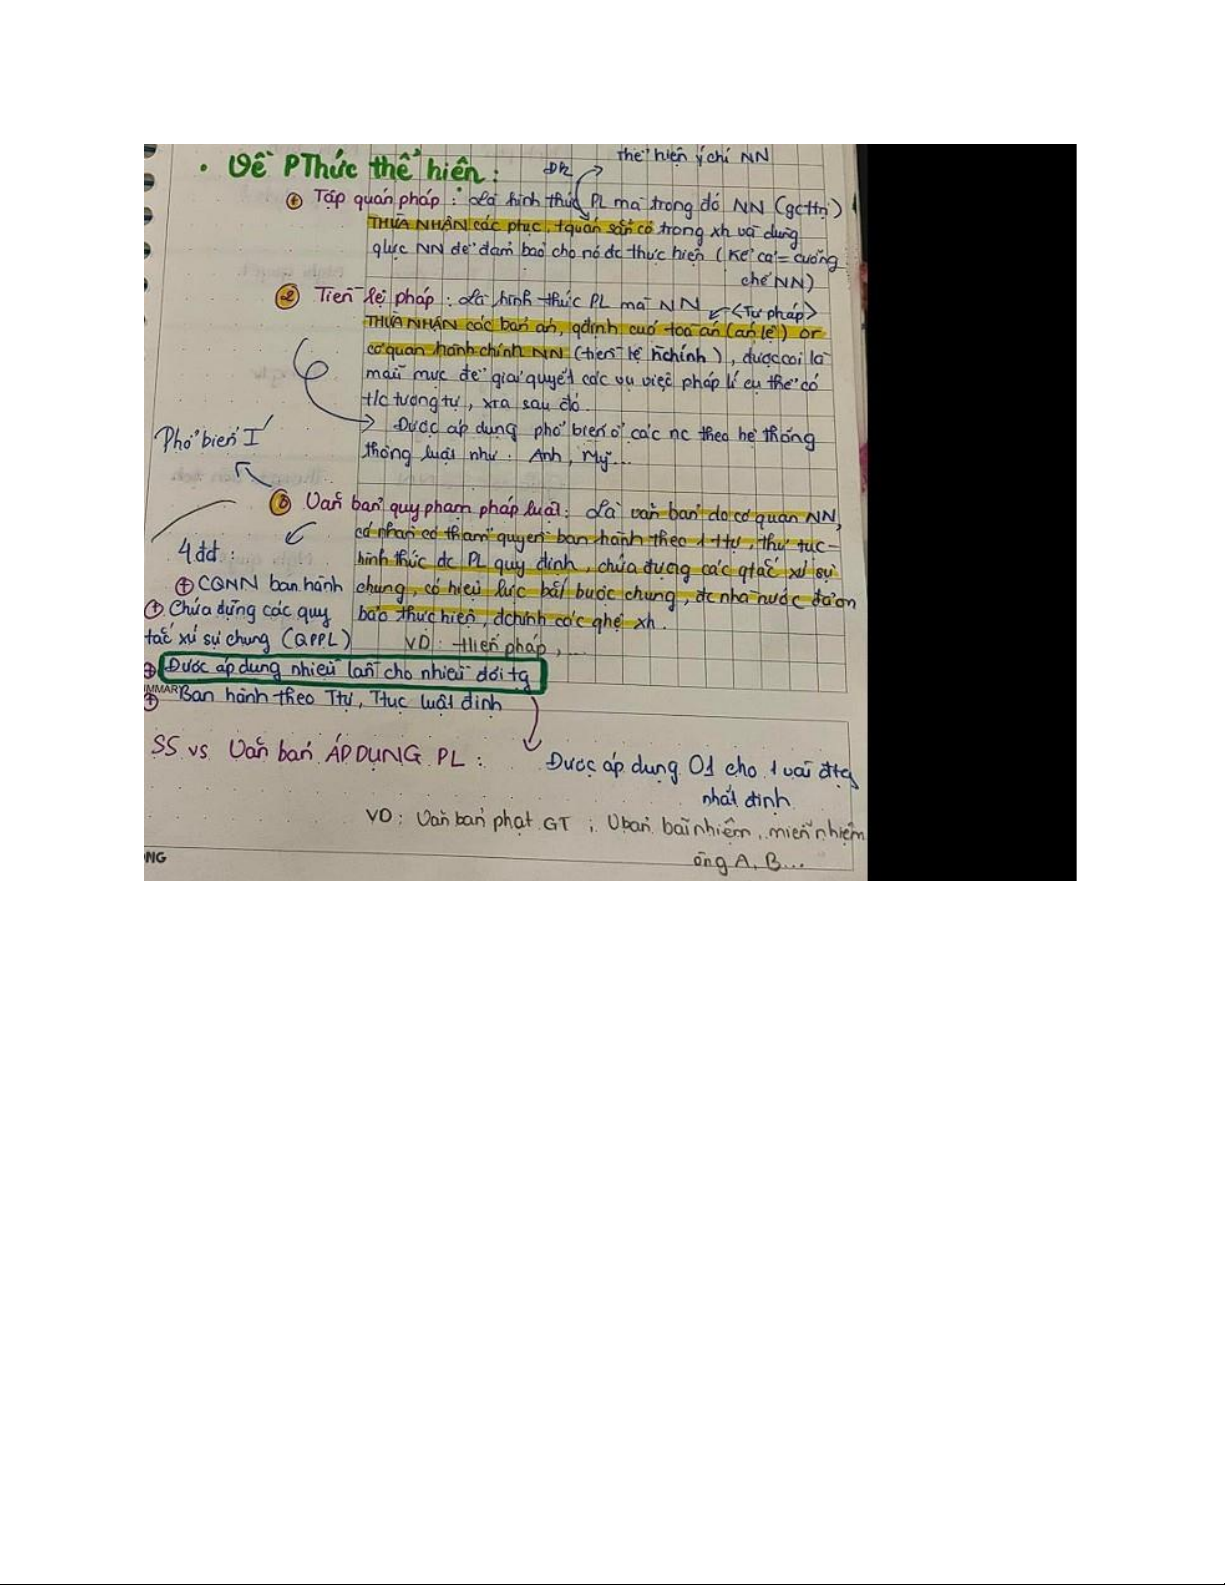 thể hiện ý chí NN
• Về PThức thể hiện: ĐK
① Tập quán pháp: Là hình thức PL mà trong đó NN (gcttrị)
THỪA NHẬN các ptục, tquán sẵn có trong xh và dùng
qlực NN để đảm bảo cho nó đc thực hiện (kể cả = cưỡng
chế NN)
② Tiền lệ pháp: Là hình thức PL mà NN <Tư pháp>
THỪA NHẬN các bản án, qđịnh cuả toà án (án lệ) or
cơ quan hành chính NN (tiền lệ hchính), được coi là
mẫu mực để giải quyết các vụ việc pháp lí cụ thể có
t/c tương tự, xra sau đó.
Được áp dụng phổ biến ở các nc theo hệ thống
thông luật như: Anh, Mỹ...
Phổ biến I
③ Văn bản quy phạm pháp luật: Là văn bản do cơ quan NN,
cá nhân có thẩm quyền ban hành theo ttự, thủ tục-
hình thức đc PL quy định, chứa đựng các qtắc xử sự
chung, có hiệu lực bắt buộc chung, đc nhà nước đảm
bảo thực hiện, đchỉnh các qhệ xh.
VD: Hiến pháp,...
4 đđ:
+ CQNN ban hành
+ Chứa đựng các quy
tắc xử sự chung (QPPL)
+ Được áp dụng nhiều lần cho nhiều đối tg
MMAR
+ Ban hành theo Ttự, Ttục luật định
SS vs Văn bản ÁP DỤNG PL:
Được áp dụng 01 cho 1 vài đtg
nhất định
VD: Văn bản phạt GT; Vbản bãi nhiệm, miễn nhiệm
ông A, B...
NG